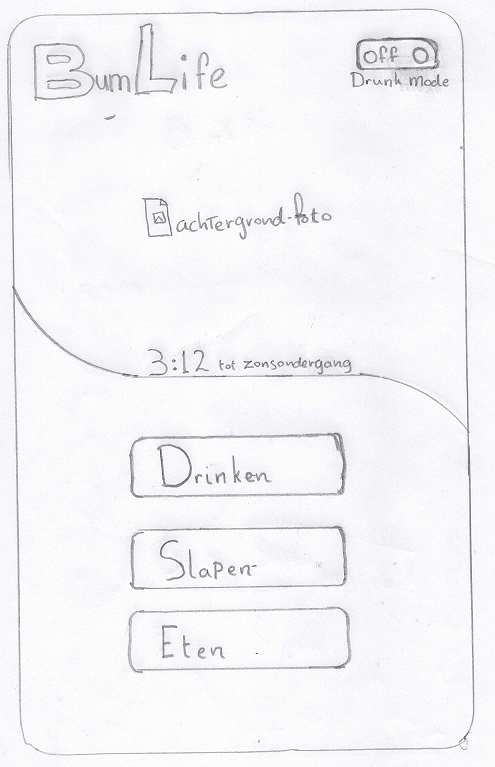 BumLife
Off O
Drunk mode
achtergrond-foto
3:12 tot zonsondergang
Drinken
Slapen
Eten